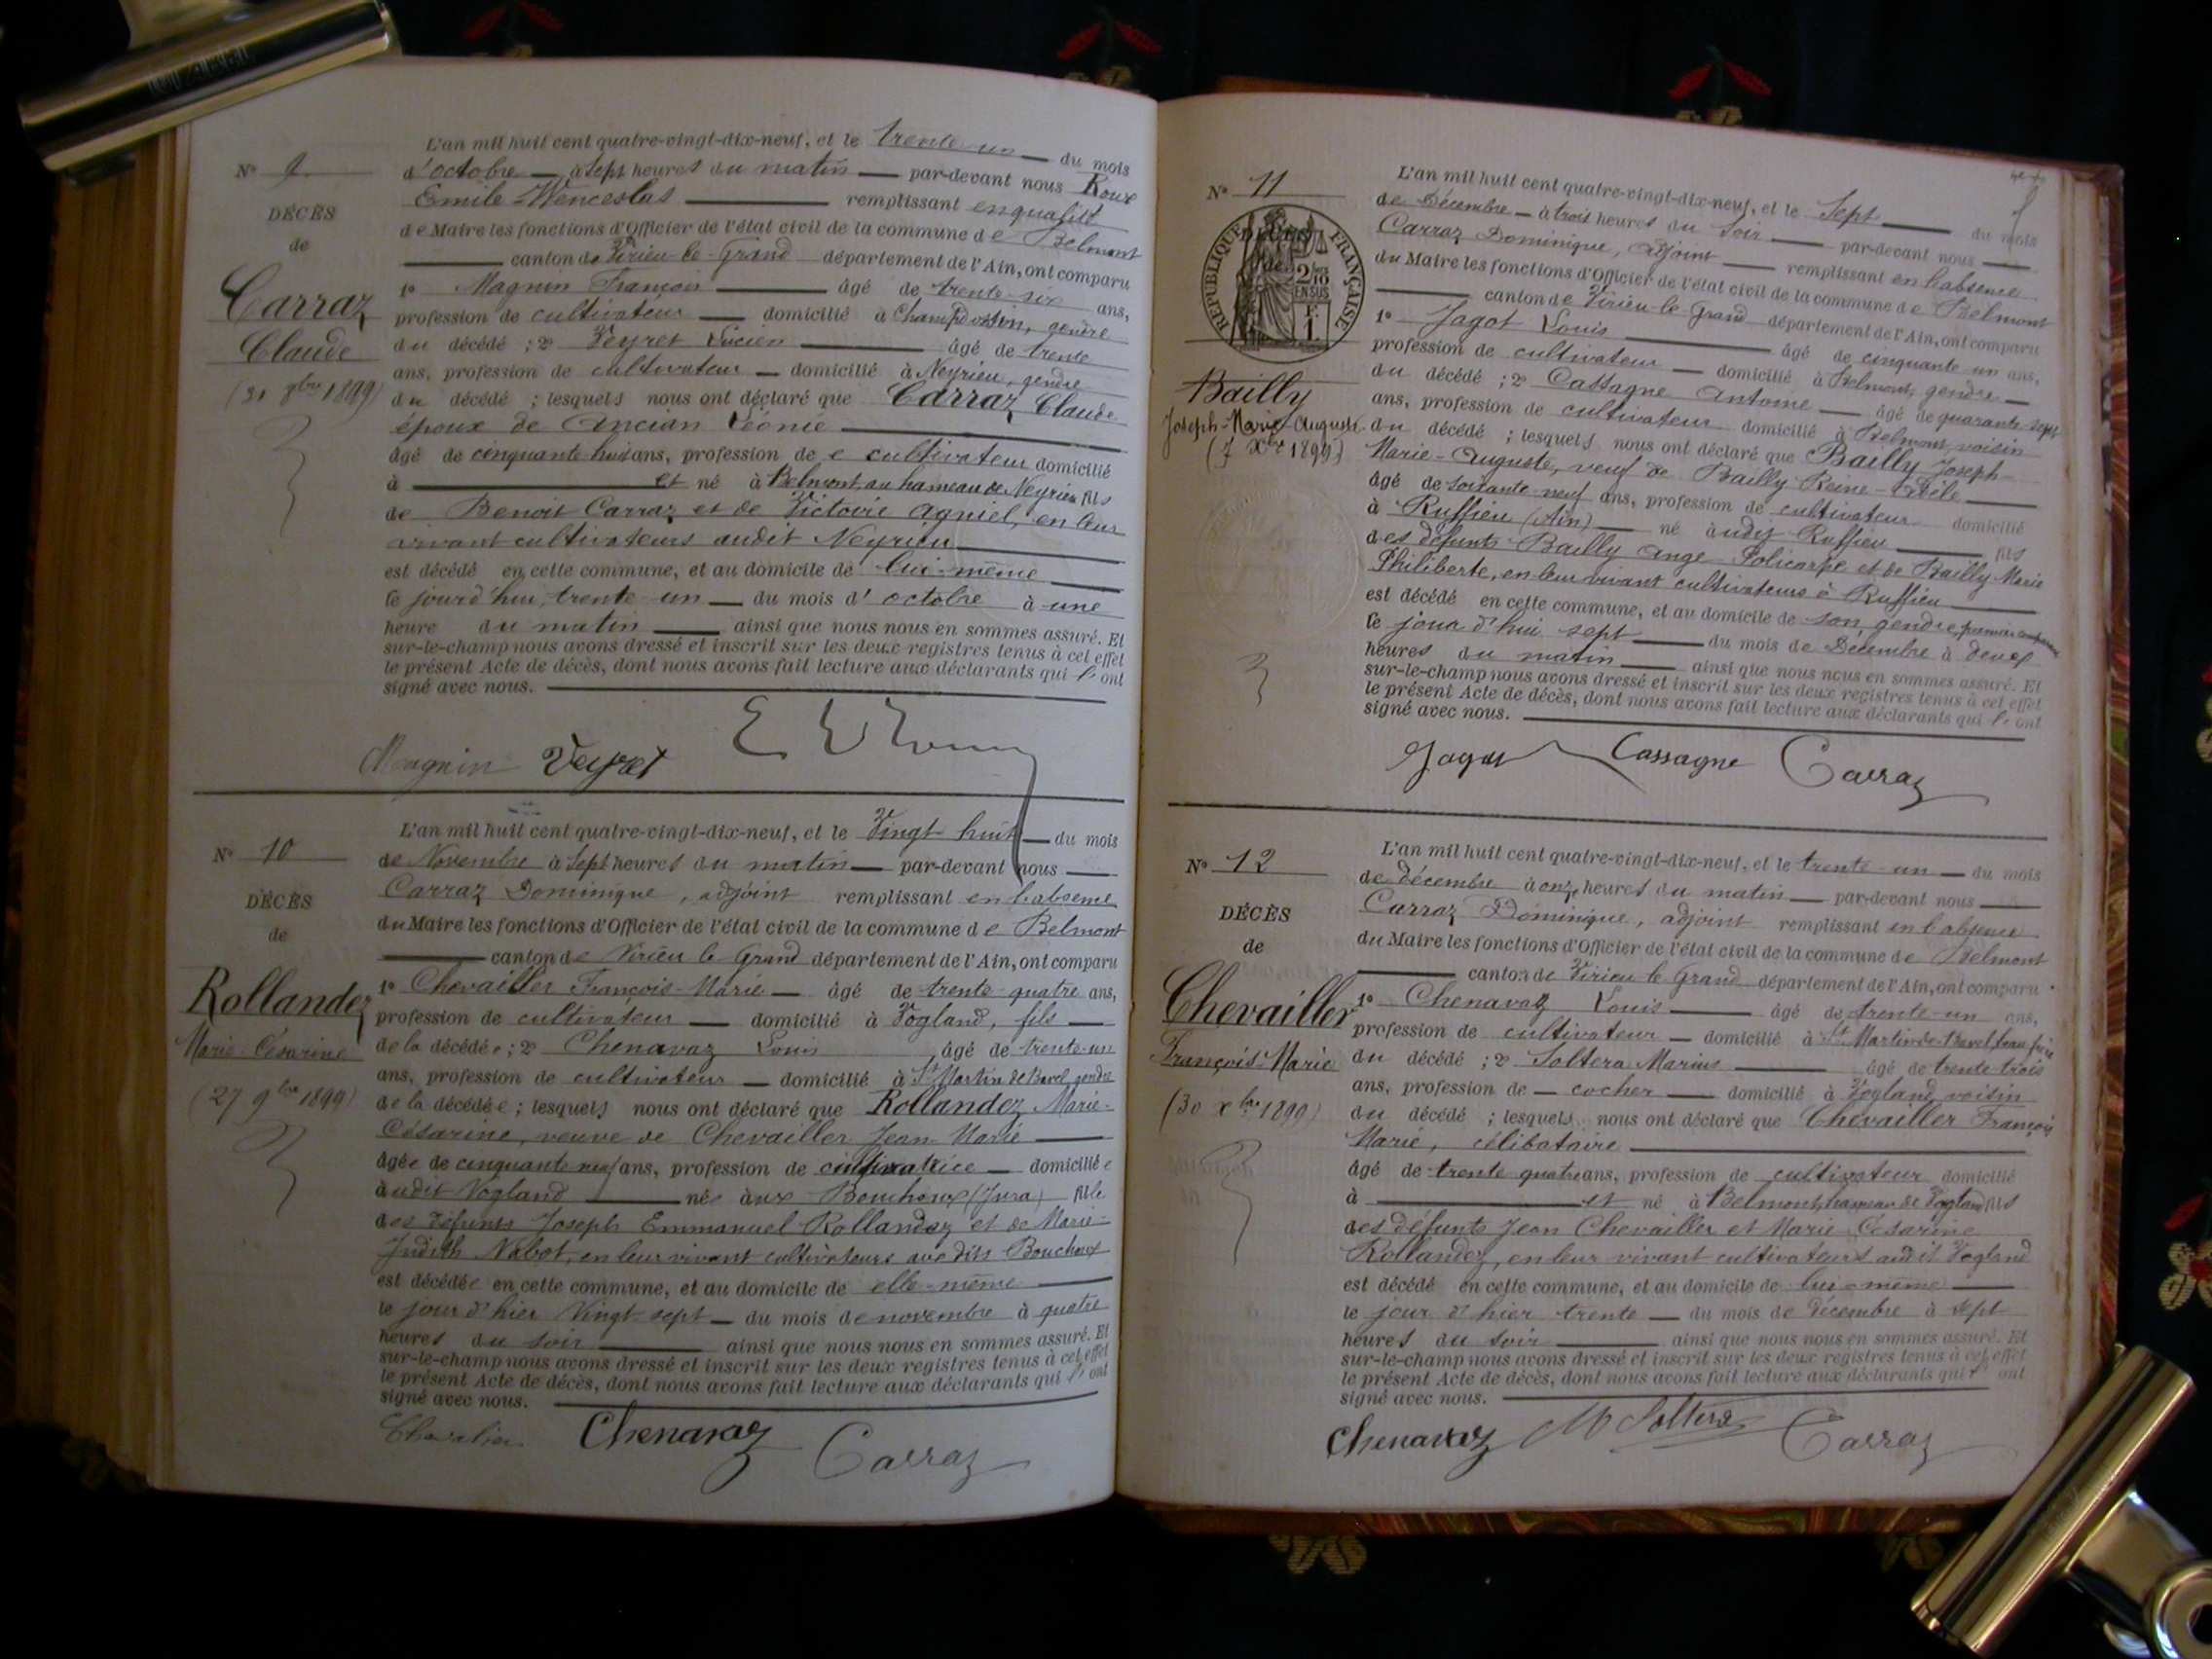 L'an mil huit cent quatre-vingt-dix-neuf, et le trente un du mois
N° 9
d'octobre à Sept heures du matin par-devant nous Roux
Emile Wenceslas remplissant en qualité
DÉCÈS
de Maire les fonctions d'Officier de l'état civil de la commune de Belmont
de
canton de Virieu-le-Grand département de l'Ain, ont comparu
1° Magnin François âgé de trente-six ans,
Carraz
profession de cultivateur domicilié à Champdossin, gendre
Claude
du décédé ; 2° Veyret Lucien âgé de trente
ans, profession de cultivateur domicilié à Neyrieu, gendre
(31 8bre 1899)
du décédé ; lesquels nous ont déclaré que Carraz Claude
époux de Ancian Léonie
âgé de cinquante huit ans, profession de cultivateur domicilié
à et né à Belmont au hameau de Neyrieu fils
de Benoit Carraz et de Victoire Agniel, en leur
vivant cultivateurs audit Neyrieu
est décédé en cette commune, et au domicile de lui-même
le jourd'hui, trente-un du mois d'octobre à une
heure du matin ainsi que nous nous en sommes assuré. Et
sur-le-champ nous avons dressé et inscrit sur les deux registres tenus à cet effet
le présent Acte de décès, dont nous avons fait lecture aux déclarants qui l'ont
signé avec nous.
Magnin Veyret E W Roux
L'an mil huit cent quatre-vingt-dix-neuf, et le Vingt huit du mois
N° 10
de Novembre à Sept heures du matin par-devant nous
Carraz Dominique, adjoint remplissant en l'absence
DÉCÈS
du Maire les fonctions d'Officier de l'état civil de la commune de Belmont
de
canton de Virieu le Grand département de l'Ain, ont comparu
Rollandez
1° Chevailler François-Marie âgé de trente-quatre ans,
profession de cultivateur domicilié à Vogland, fils
Marie-Césarine
de la décédée ; 2° Chenavaz Louis âgé de trente-un
ans, profession de cultivateur domicilié à St Martin de Bavel gendre
(27 9bre 1899)
de la décédée ; lesquels nous ont déclaré que Rollandez Marie-
Césarine, veuve de Chevailler Jean-Marie
âgée de cinquante neuf ans, profession de cultivatrice domiciliée
audit Vogland née aux Bouchoux (Jura) fille
des défunts Joseph Emmanuel Rollandez et de Marie-
Judith Nabot, en leur vivant cultivateurs aux dits Bouchoux
est décédée en cette commune, et au domicile de elle-même
le jour d'hier Vingt-sept du mois de novembre à quatre
heures du soir ainsi que nous nous en sommes assuré. Et
sur-le-champ nous avons dressé et inscrit sur les deux registres tenus à cet effet
le présent Acte de décès, dont nous avons fait lecture aux déclarants qui l'ont
signé avec nous.
Chevalier Chenavaz Carraz
L'an mil huit cent quatre-vingt-dix-neuf, et le Sept du mois
N° 11
de Décembre à trois heures du soir par-devant nous
Carraz Dominique, adjoint remplissant en l'absence
RÉPUBLIQUE FRANÇAISE
DÉCÈS
de
2/10
EN SUS
F.
1
du Maire les fonctions d'Officier de l'état civil de la commune de Belmont
canton de Virieu-le-Grand département de l'Ain, ont comparu
1° Jagot Louis âgé de cinquante un ans,
profession de cultivateur domicilié à Belmont, gendre
du décédé ; 2° Cassagne Antoine âgé de quarante-sept
Bailly
ans, profession de cultivateur domicilié à Belmont, voisin
Joseph-Marie-Auguste
du décédé ; lesquels nous ont déclaré que Bailly Joseph-
(7 Xbre 1899)
Marie-Auguste, veuf de Bailly Reine
âgé de soixante neuf ans, profession de cultivateur domicilié
à Ruffieu (Ain) né audit Ruffieu fils
des défunts Bailly Ange Policarpe et de Bailly Marie
Philiberte, en leur vivant cultivateurs à Ruffieu
est décédé en cette commune, et au domicile de son gendre, premier comparant
le jour d'hui sept du mois de Décembre à deux
heures du matin ainsi que nous nous en sommes assuré. Et
sur-le-champ nous avons dressé et inscrit sur les deux registres tenus à cet effet
le présent Acte de décès, dont nous avons fait lecture aux déclarants qui l'ont
signé avec nous.
Jagot Cassagne Carraz
L'an mil huit cent quatre-vingt-dix-neuf, et le trente-un du mois
N° 12
de décembre à onze heures du matin par-devant nous
Carraz Dominique, adjoint remplissant en l'absence
DÉCÈS
du Maire les fonctions d'Officier de l'état civil de la commune de Belmont
de
canton de Virieu le Grand département de l'Ain, ont comparu
Chevailler
1° Chenavaz Louis âgé de trente-un ans,
profession de cultivateur domicilié à St Martin-de-Bavel, beau frère
François-Marie
du décédé ; 2° Soltera Marius âgé de trente-trois
ans, profession de cocher domicilié à Vogland, voisin
(30 Xbre 1899)
du décédé ; lesquels nous ont déclaré que Chevailler François
Marie, célibataire
âgé de trente quatre ans, profession de cultivateur domicilié
à et né à Belmont, hameau de Vogland fils
des défunts Jean Chevailler et Marie-Césarine
Rollandez, en leur vivant cultivateurs audit Vogland
est décédé en cette commune, et au domicile de lui-même
le jour d'hier trente du mois de décembre à sept
heures du soir ainsi que nous nous en sommes assuré. Et
sur-le-champ nous avons dressé et inscrit sur les deux registres tenus à cet effet
le présent Acte de décès, dont nous avons fait lecture aux déclarants qui l'ont
signé avec nous.
Chenavaz M Soltera Carraz